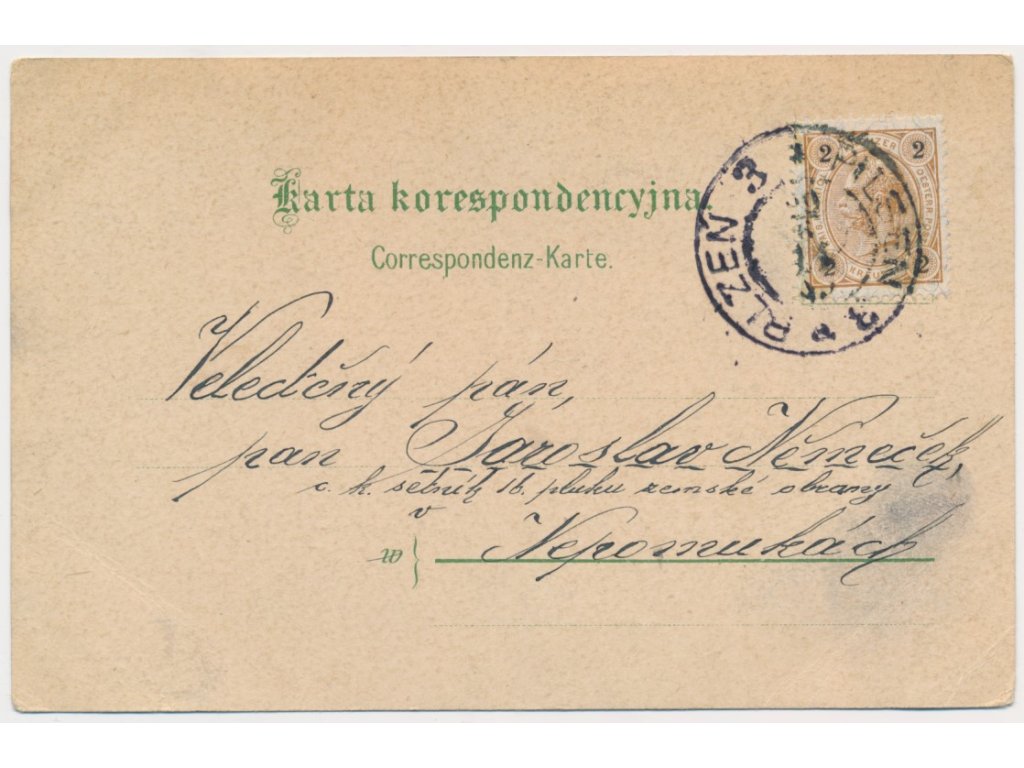 Karta korespondencyjna.
Correspondenz-Karte.
PLZEN 3
PILSEN 3
2 2
2 2
KREUZER
OESTERR. POST
Veledčný pán,
pan Jaroslav Němeček,
c. k. setník 16. pluku zemské obrany
v
w
Nepomukách